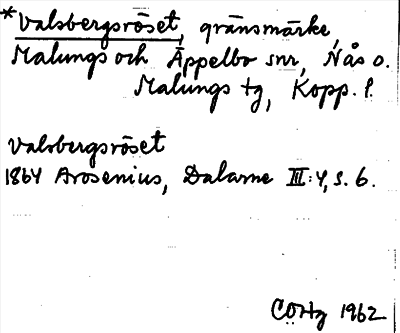 *Valsbergsröset, gränsmärke,
Malungs och Äppelbo snr, Nås o.
Malungs tg, Kopp. l.
Valsbergsröset
1864 Arosenius, Dalarne III:4, s. 6.
COHg 1962